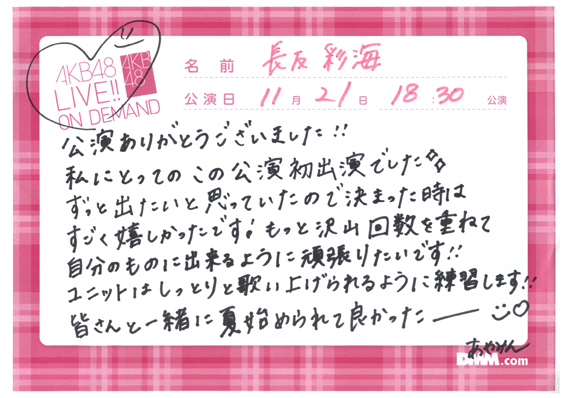 AKB48
LIVE!!
ON DEMAND
AKB
48
名前 長友 彩海
公演日 11月21日 18:30 公演
公演ありがとうございました!!
私にとってのこの公演初出演でした
ずっと出たいと思っていたので決まった時は
すごく嬉しかったです! もっと沢山回数を重ねて
自分のものに出来るように頑張りたいです!!
ユニットはしっとりと歌い上げられるように練習します!!
皆さんと一緒に夏始められて良かったー
あやみん
DMM.com